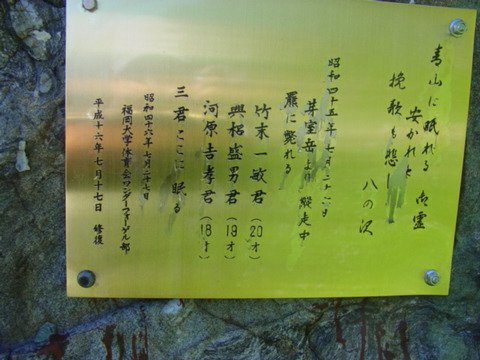 青山に眠れる 御霊
安かれと
挽歌も悲し
八の沢
昭和四十五年七月二十六日
芽室岳より縦走中
羆に斃れる
竹末一敏君(20才)
興梠盛男君(19才)
河原吉孝君(18才)
三君ここに眠る
昭和四十六年七月二十七日
福岡大学体育会ワンダーフォーゲル部
平成十六年七月十七日 修復